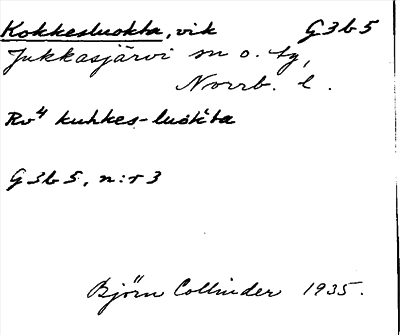 Kokkesluokta, vik G3b5
Jukkasjärvi sn o. tg,
Norrb. l.
Rv4 kuhkes-luok'ta
G3b5, n:r 3
Björn Collinder 1935.